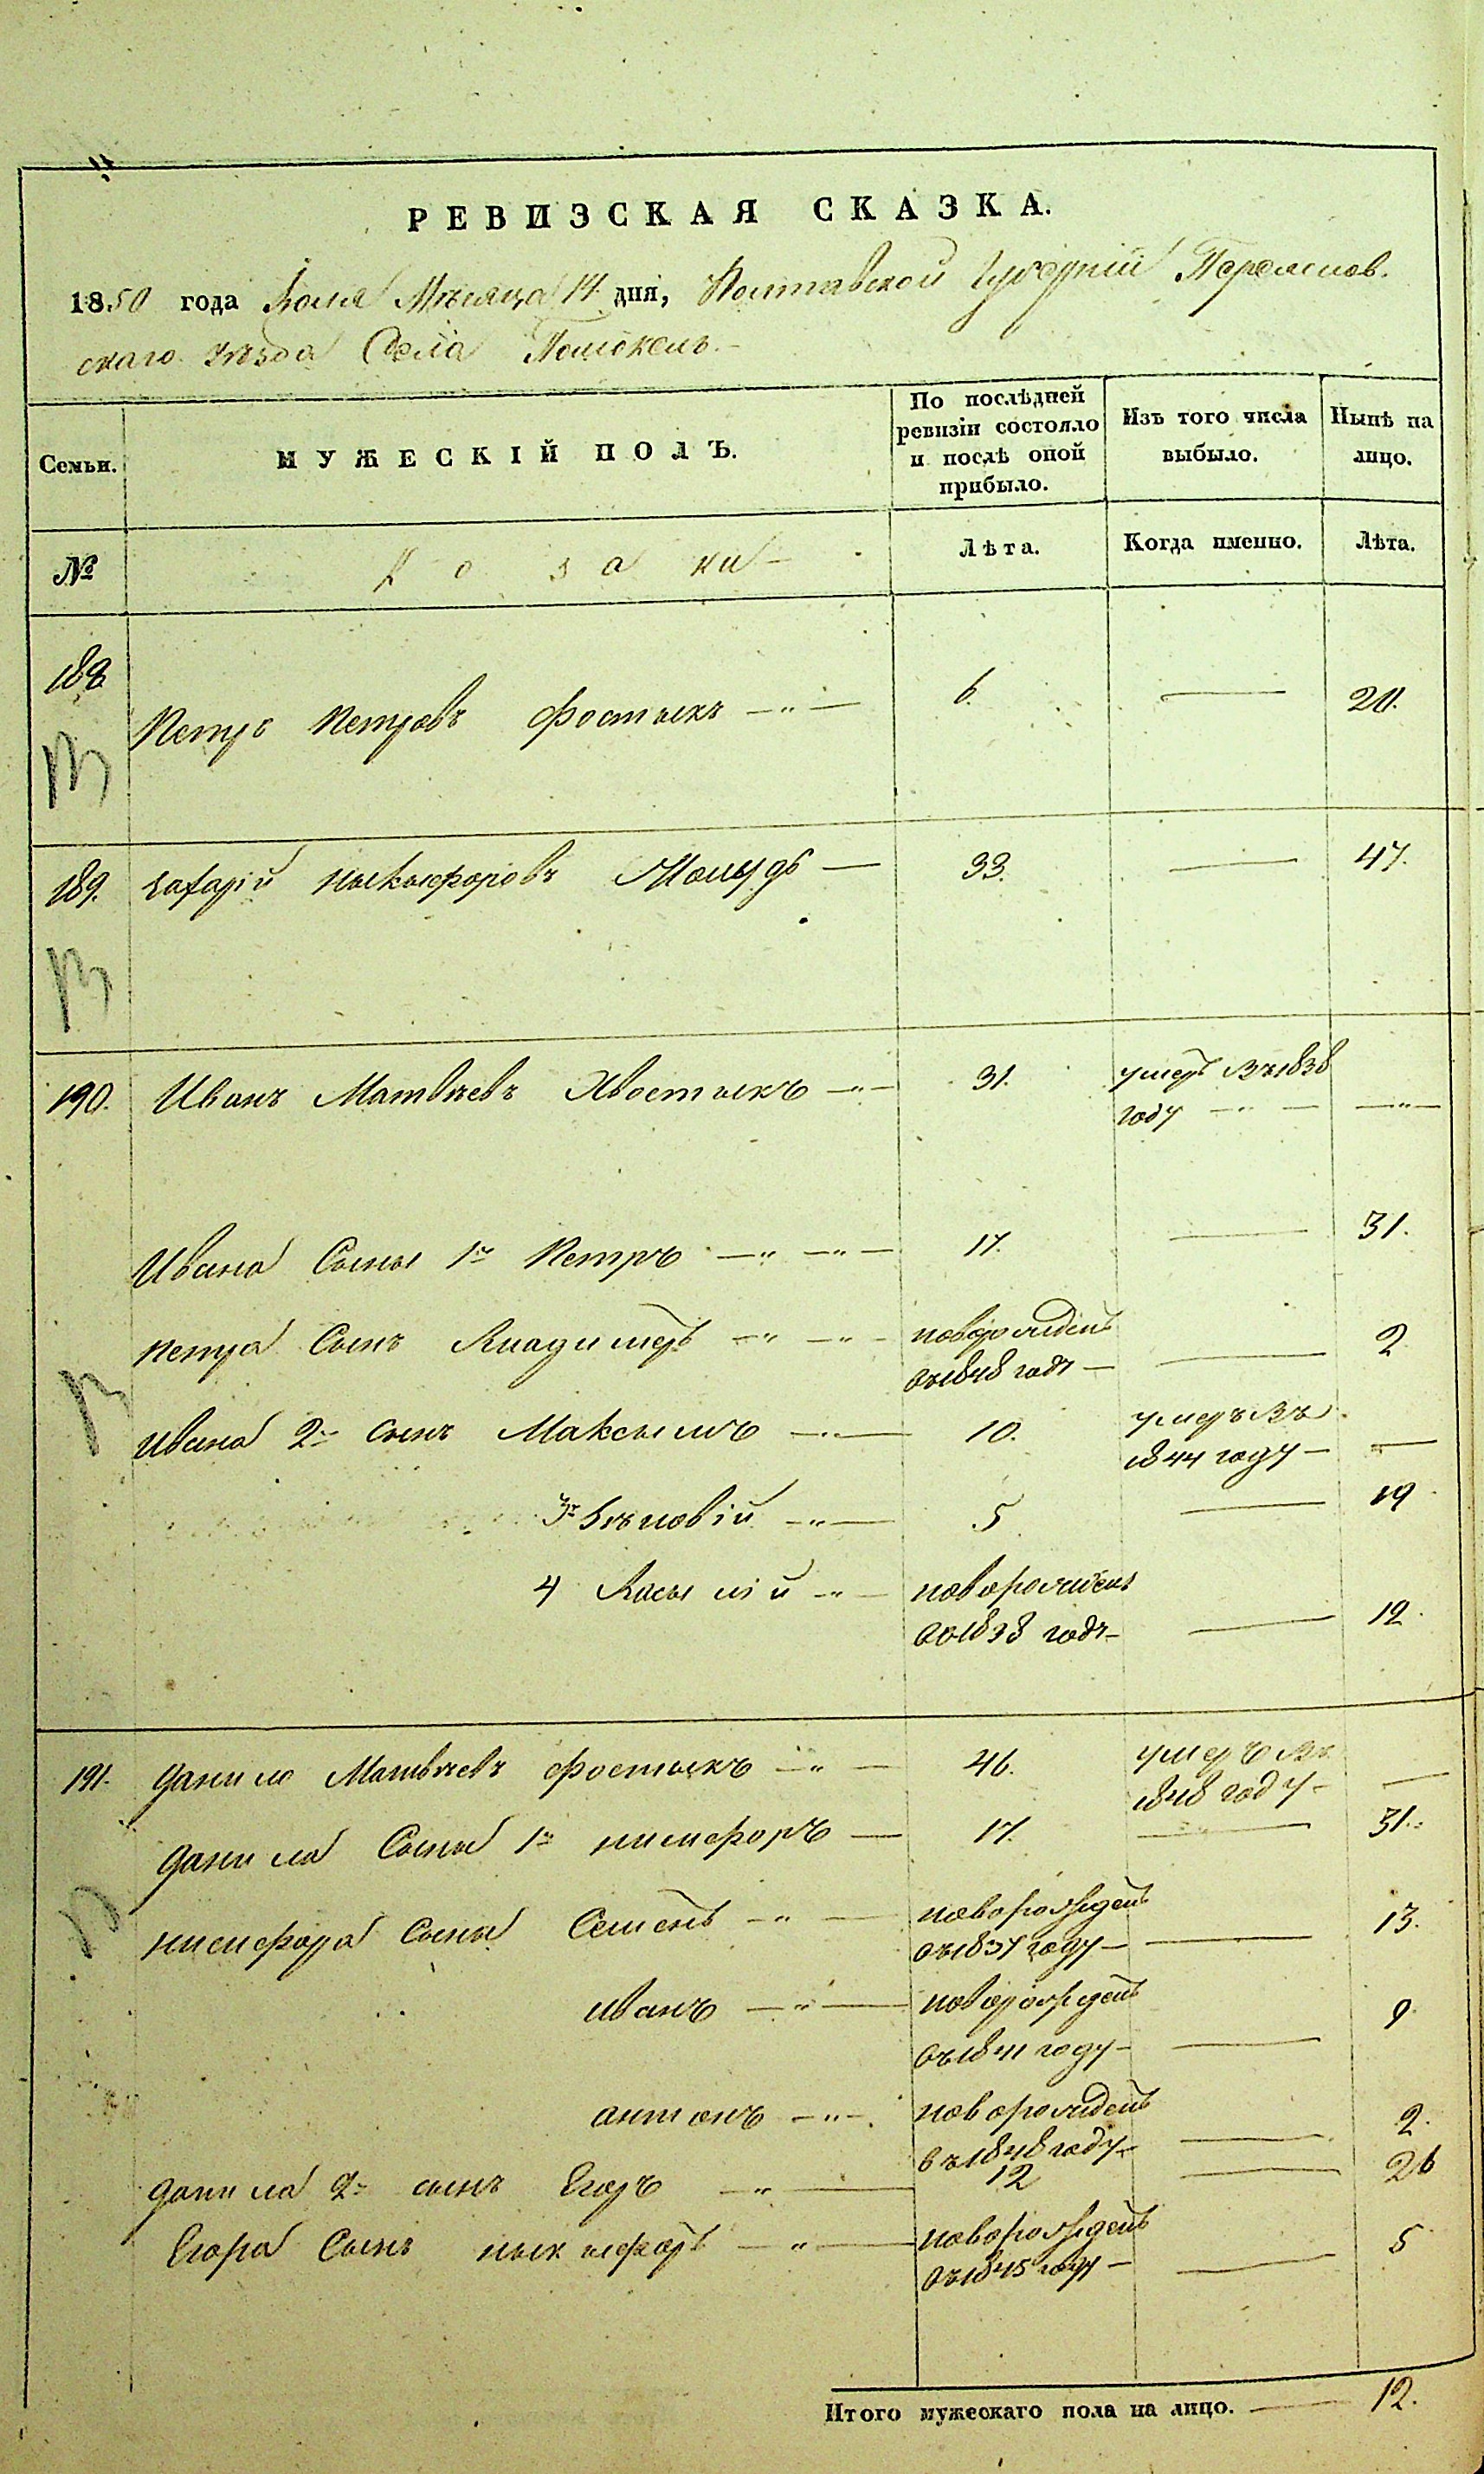 РЕВИЗСКАЯ СКАЗКА.
1850 года Іюля Мѣсяца 14 дня, Полтавской Губерніи Переяслов-
скаго уѣзда Села Помоклъ.
Семьи.
МУЖЕСКІЙ ПОЛЪ.
По послѣдней
ревизіи состояло
и послѣ оной
прибыло.
Изъ того числа
выбыло.
Нынѣ на
лицо.
№
Козаки
Лѣта.
Когда именно.
Лѣта.
188
Петръ Петровъ Фостыкъ 6. 20.
189. Ныкыфоровъ 33. 47.
190. Иванъ Матвѣевъ Хвостыкъ 31. умеръ въ 1838
году
Ивана Сыны 1й Петръ 17. 31.
Петра Сынъ Владимеръ новорожденъ
въ 1848 году 2
Ивана 2й сынъ Максымъ 10. умеръ въ
1844 году
3й Зѣновій 5 19
4 Васылій новорожденъ
въ 1838 году 12.
191. Данило Матвѣевъ Фостыкъ 46. умеръ въ
1848 году
Данила Сына 1й Никифоръ 17. 31.
Никифора Сына Семенъ новорожденъ
въ 1837 году 13.
Иванъ новорожденъ
въ 1841 году 9.
Антонъ новорожденъ
въ 1848 году 2.
Данила 2й сынъ Егоръ 12 26
Егора Сынъ Ныкыфоръ новорожденъ
въ 1845 году 5
Итого мужескаго пола на лицо. 12.